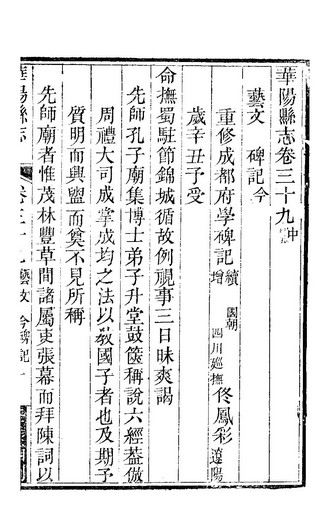 華陽縣志卷三十九中
藝文 碑記今
重修成都府學碑記續增 國朝四川巡撫佟鳳彩遼陽
歲辛丑予受
命撫蜀駐節錦城循故例視事三日昧爽謁
先師孔子廟集博士弟子升堂鼓篋稱說六經蓋倣
周禮大司成掌成均之法以教國子者也及期予
質明而興盥而奠不見所稱
先師廟者惟茂林豐草間諸屬吏張幕而拜陳詞以
華陽縣志 卷三十九 藝文 今碑記 一